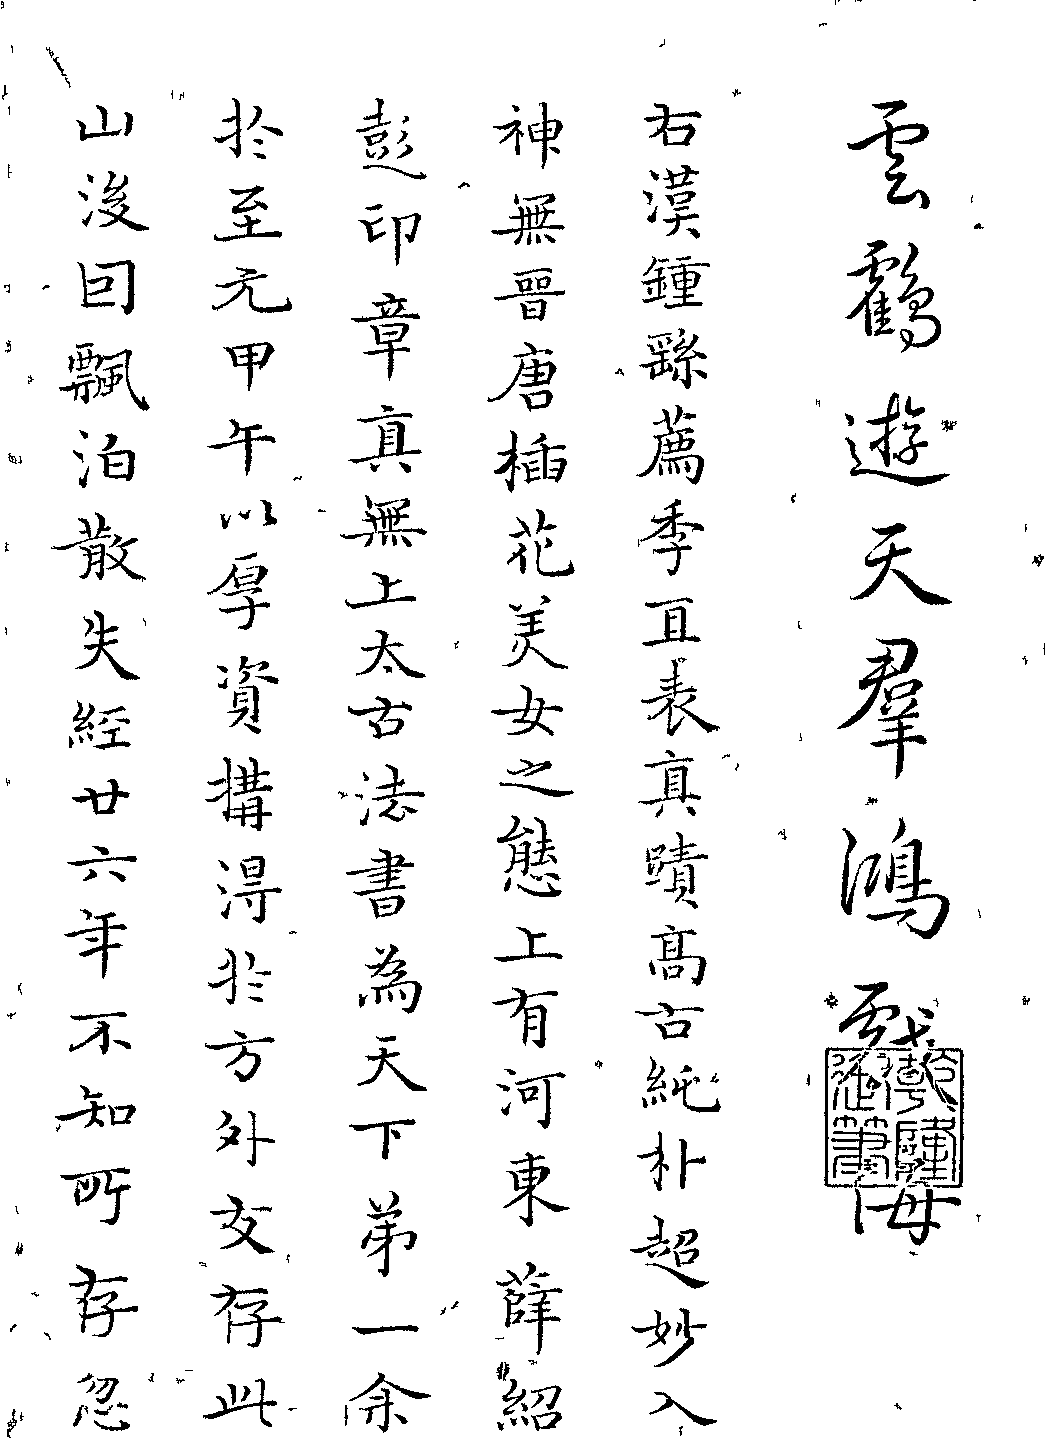 雲鶴遊天羣鴻戲海
乾隆
御筆
右漢鍾繇薦季直表真蹟高古純朴超妙入
神無晉唐插花美女之態上有河東薛紹
彭印章真無上太古法書為天下第一余
於至元甲午以厚資搆得於方外友存此
山後囙飄泊散失經廿六年不知所存忽